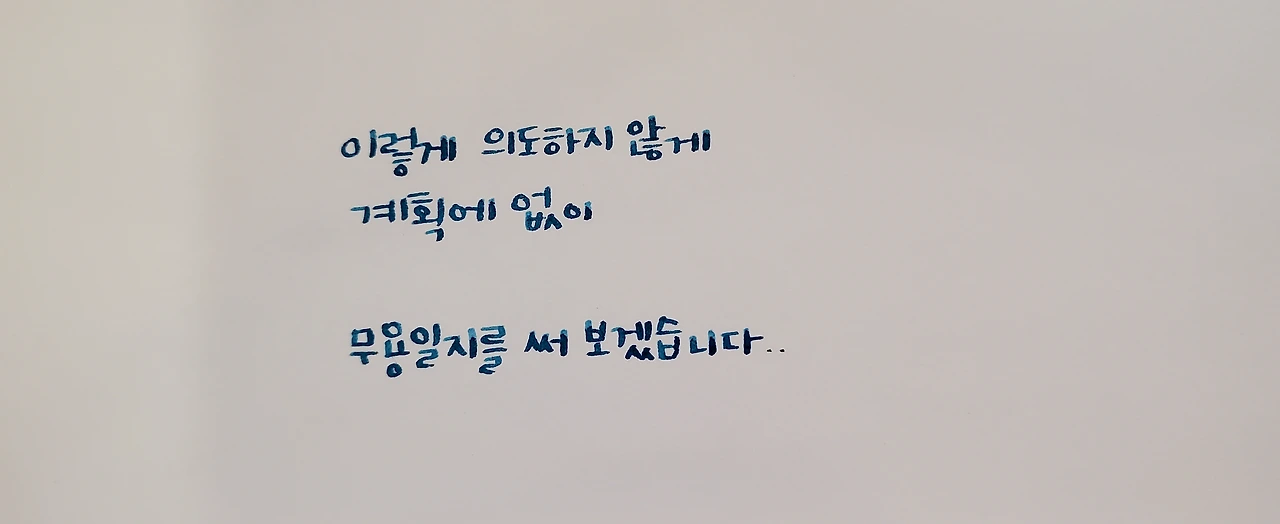 이렇게 의도하지 않게
계획에 없이
무용일지를 써 보겠습니다..